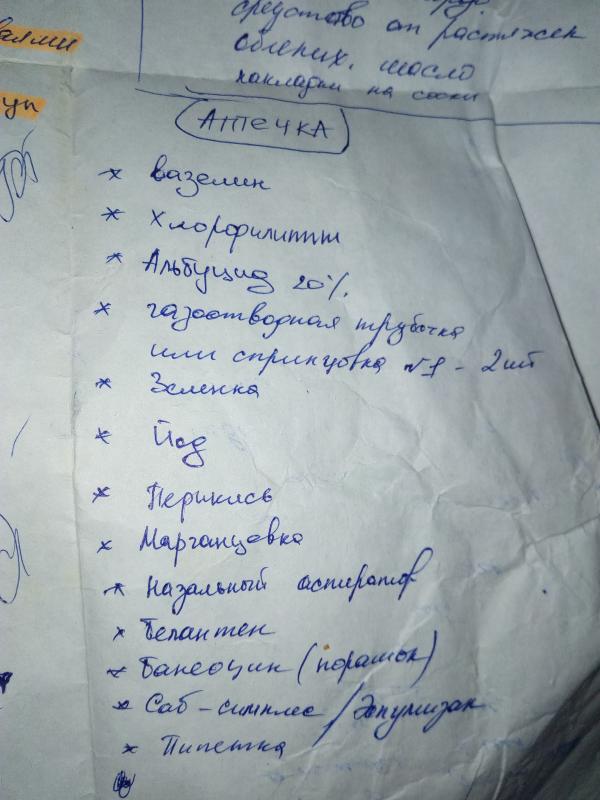 средство от растяжек
облепих. масло
накладки на соски
АПТЕЧКА
* вазелин
* Хлорофиллипт
* Альбуцид 20%.
* газоотводная трубочка
или спринцовка №1 - 2шт
* Зеленка
* Йод
* Перикись
* Марганцовка
* Назальный аспиратор
* Бепантен
* Банеоцин (порашок)
* Саб-симплес / Эспумизан
* Пипетка